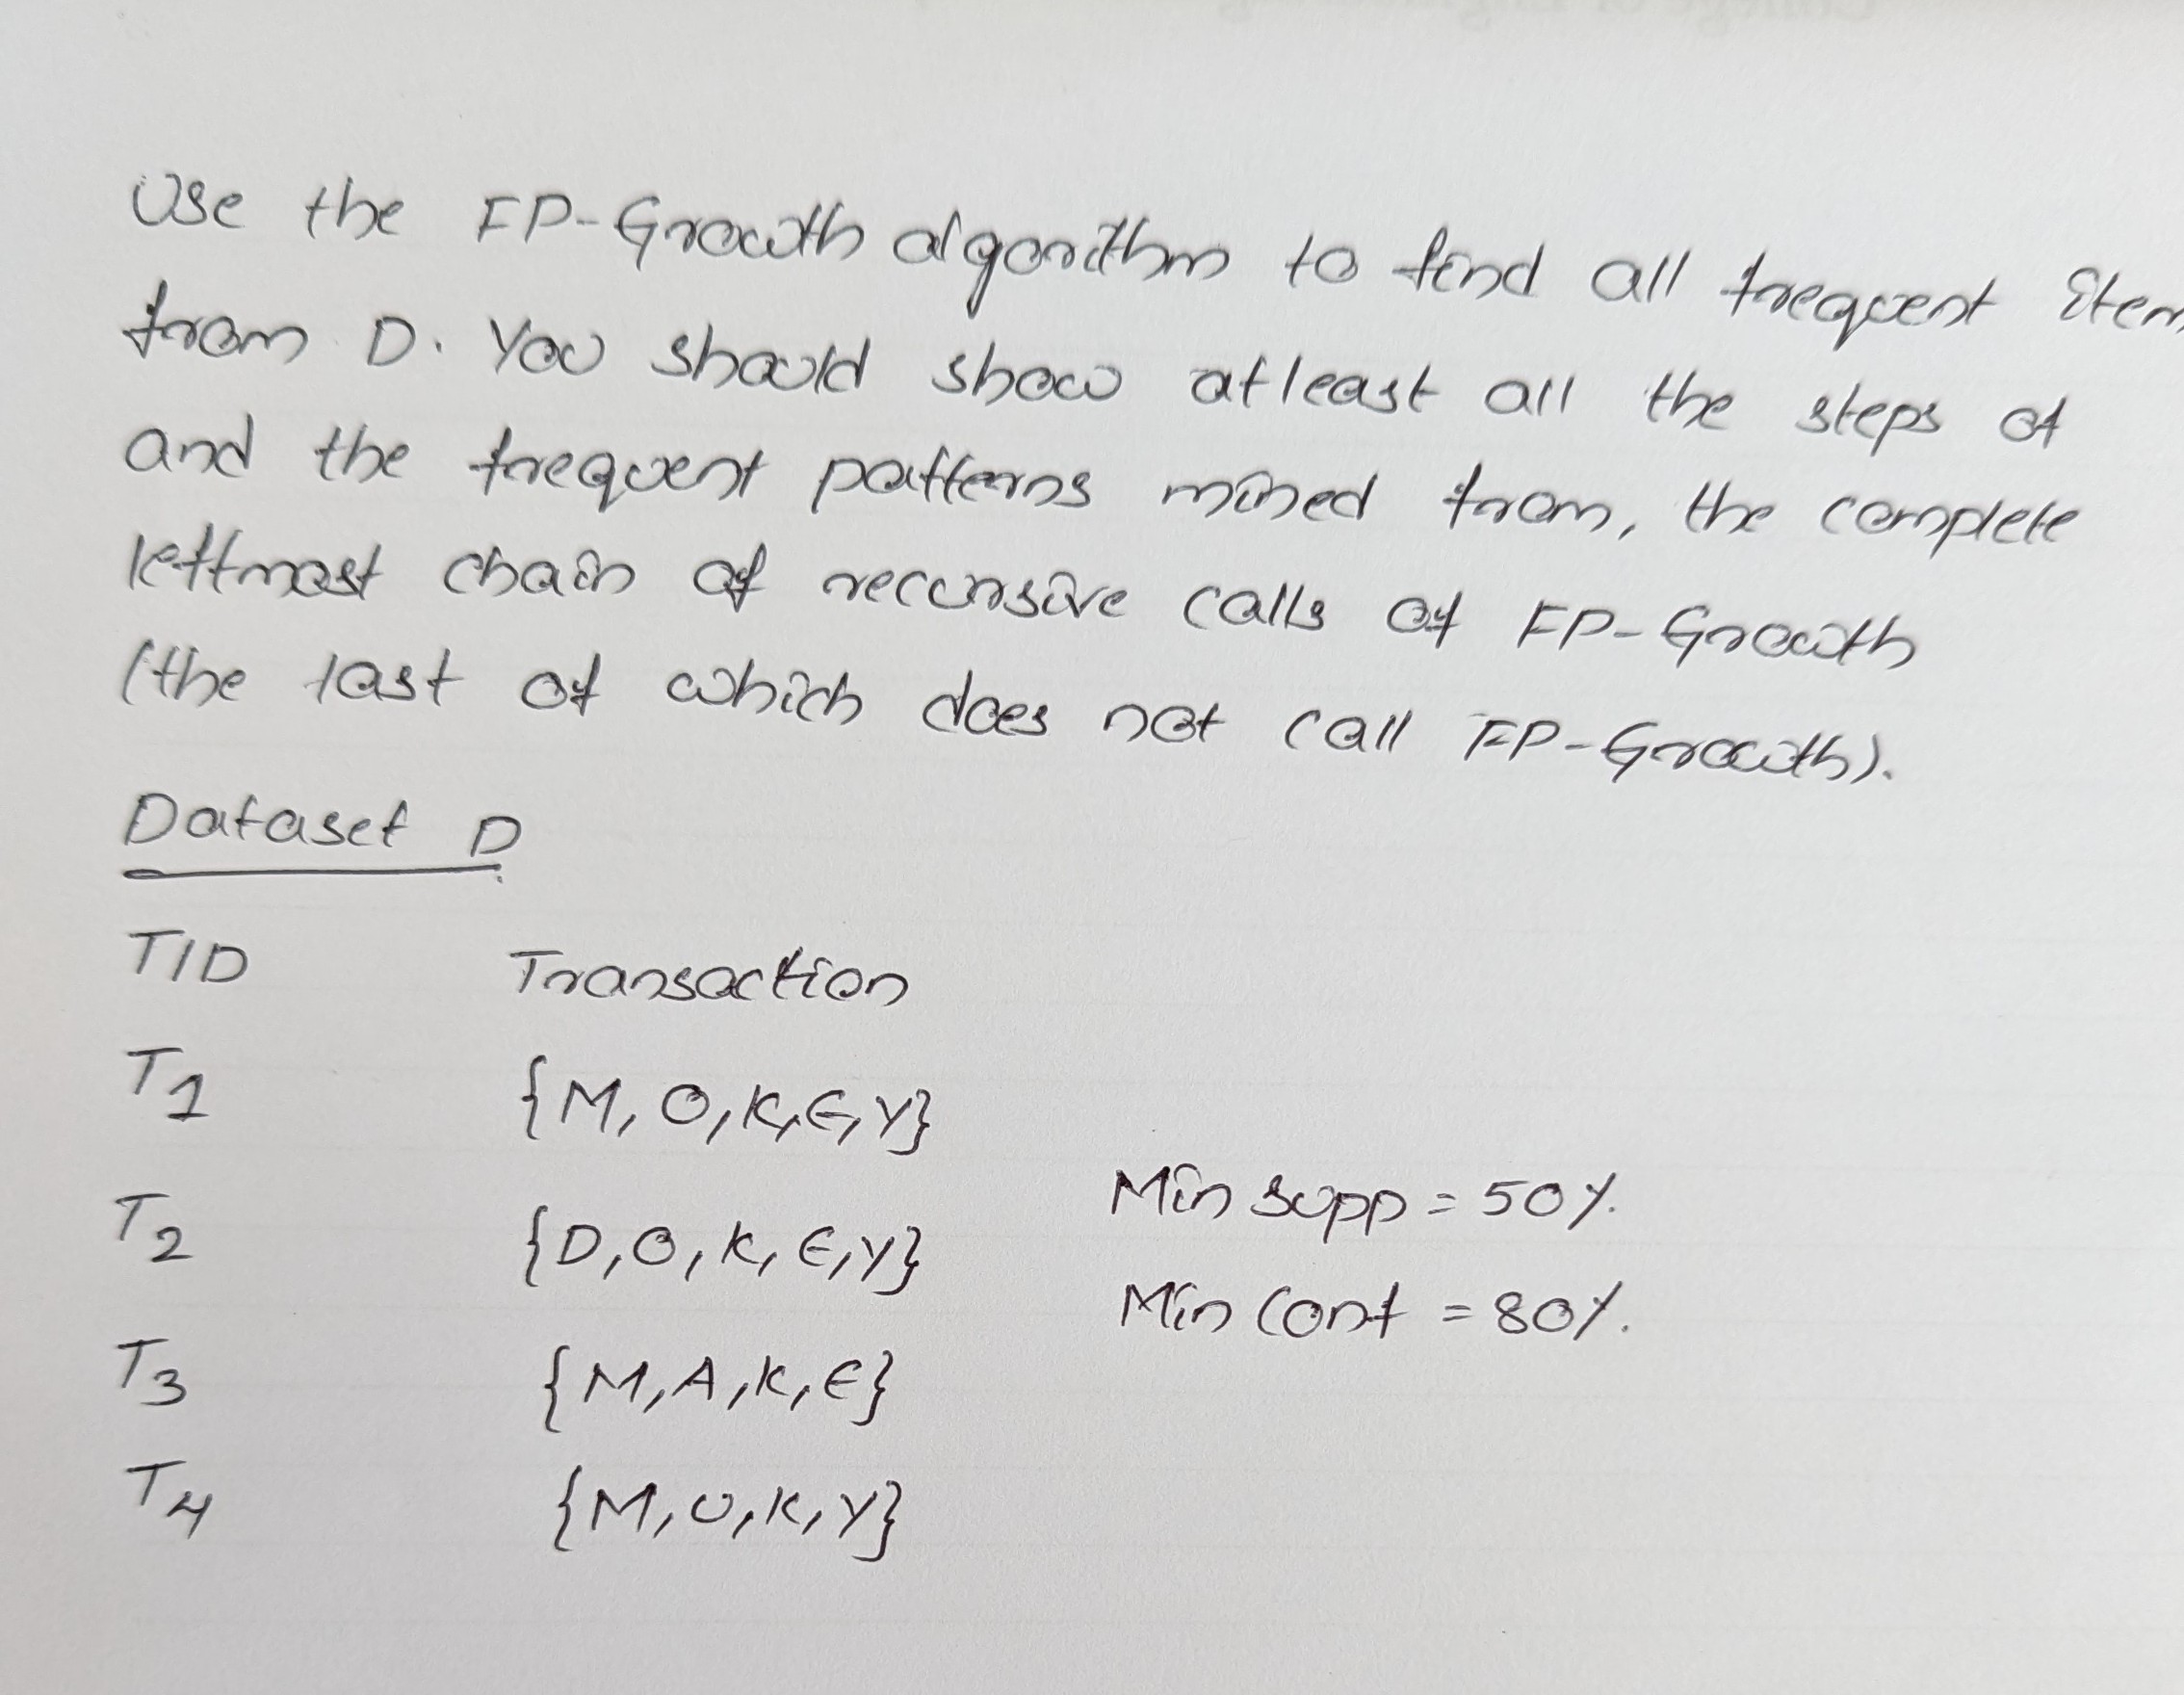 Use the FP-Growth algorithm to find all frequent item
from D. You should show atleast all the steps of
and the frequent patterns mined from, the complete
leftmost chain of recursive calls of FP-Growth
(the last of which does not call FP-Growth).
Dataset D
TID Transaction
T1 {M, O, K, E, Y}
T2 {D, O, K, E, Y}
Min supp = 50%.
Min Conf = 80%.
T3 {M, A, K, E}
T4 {M, O, K, Y}